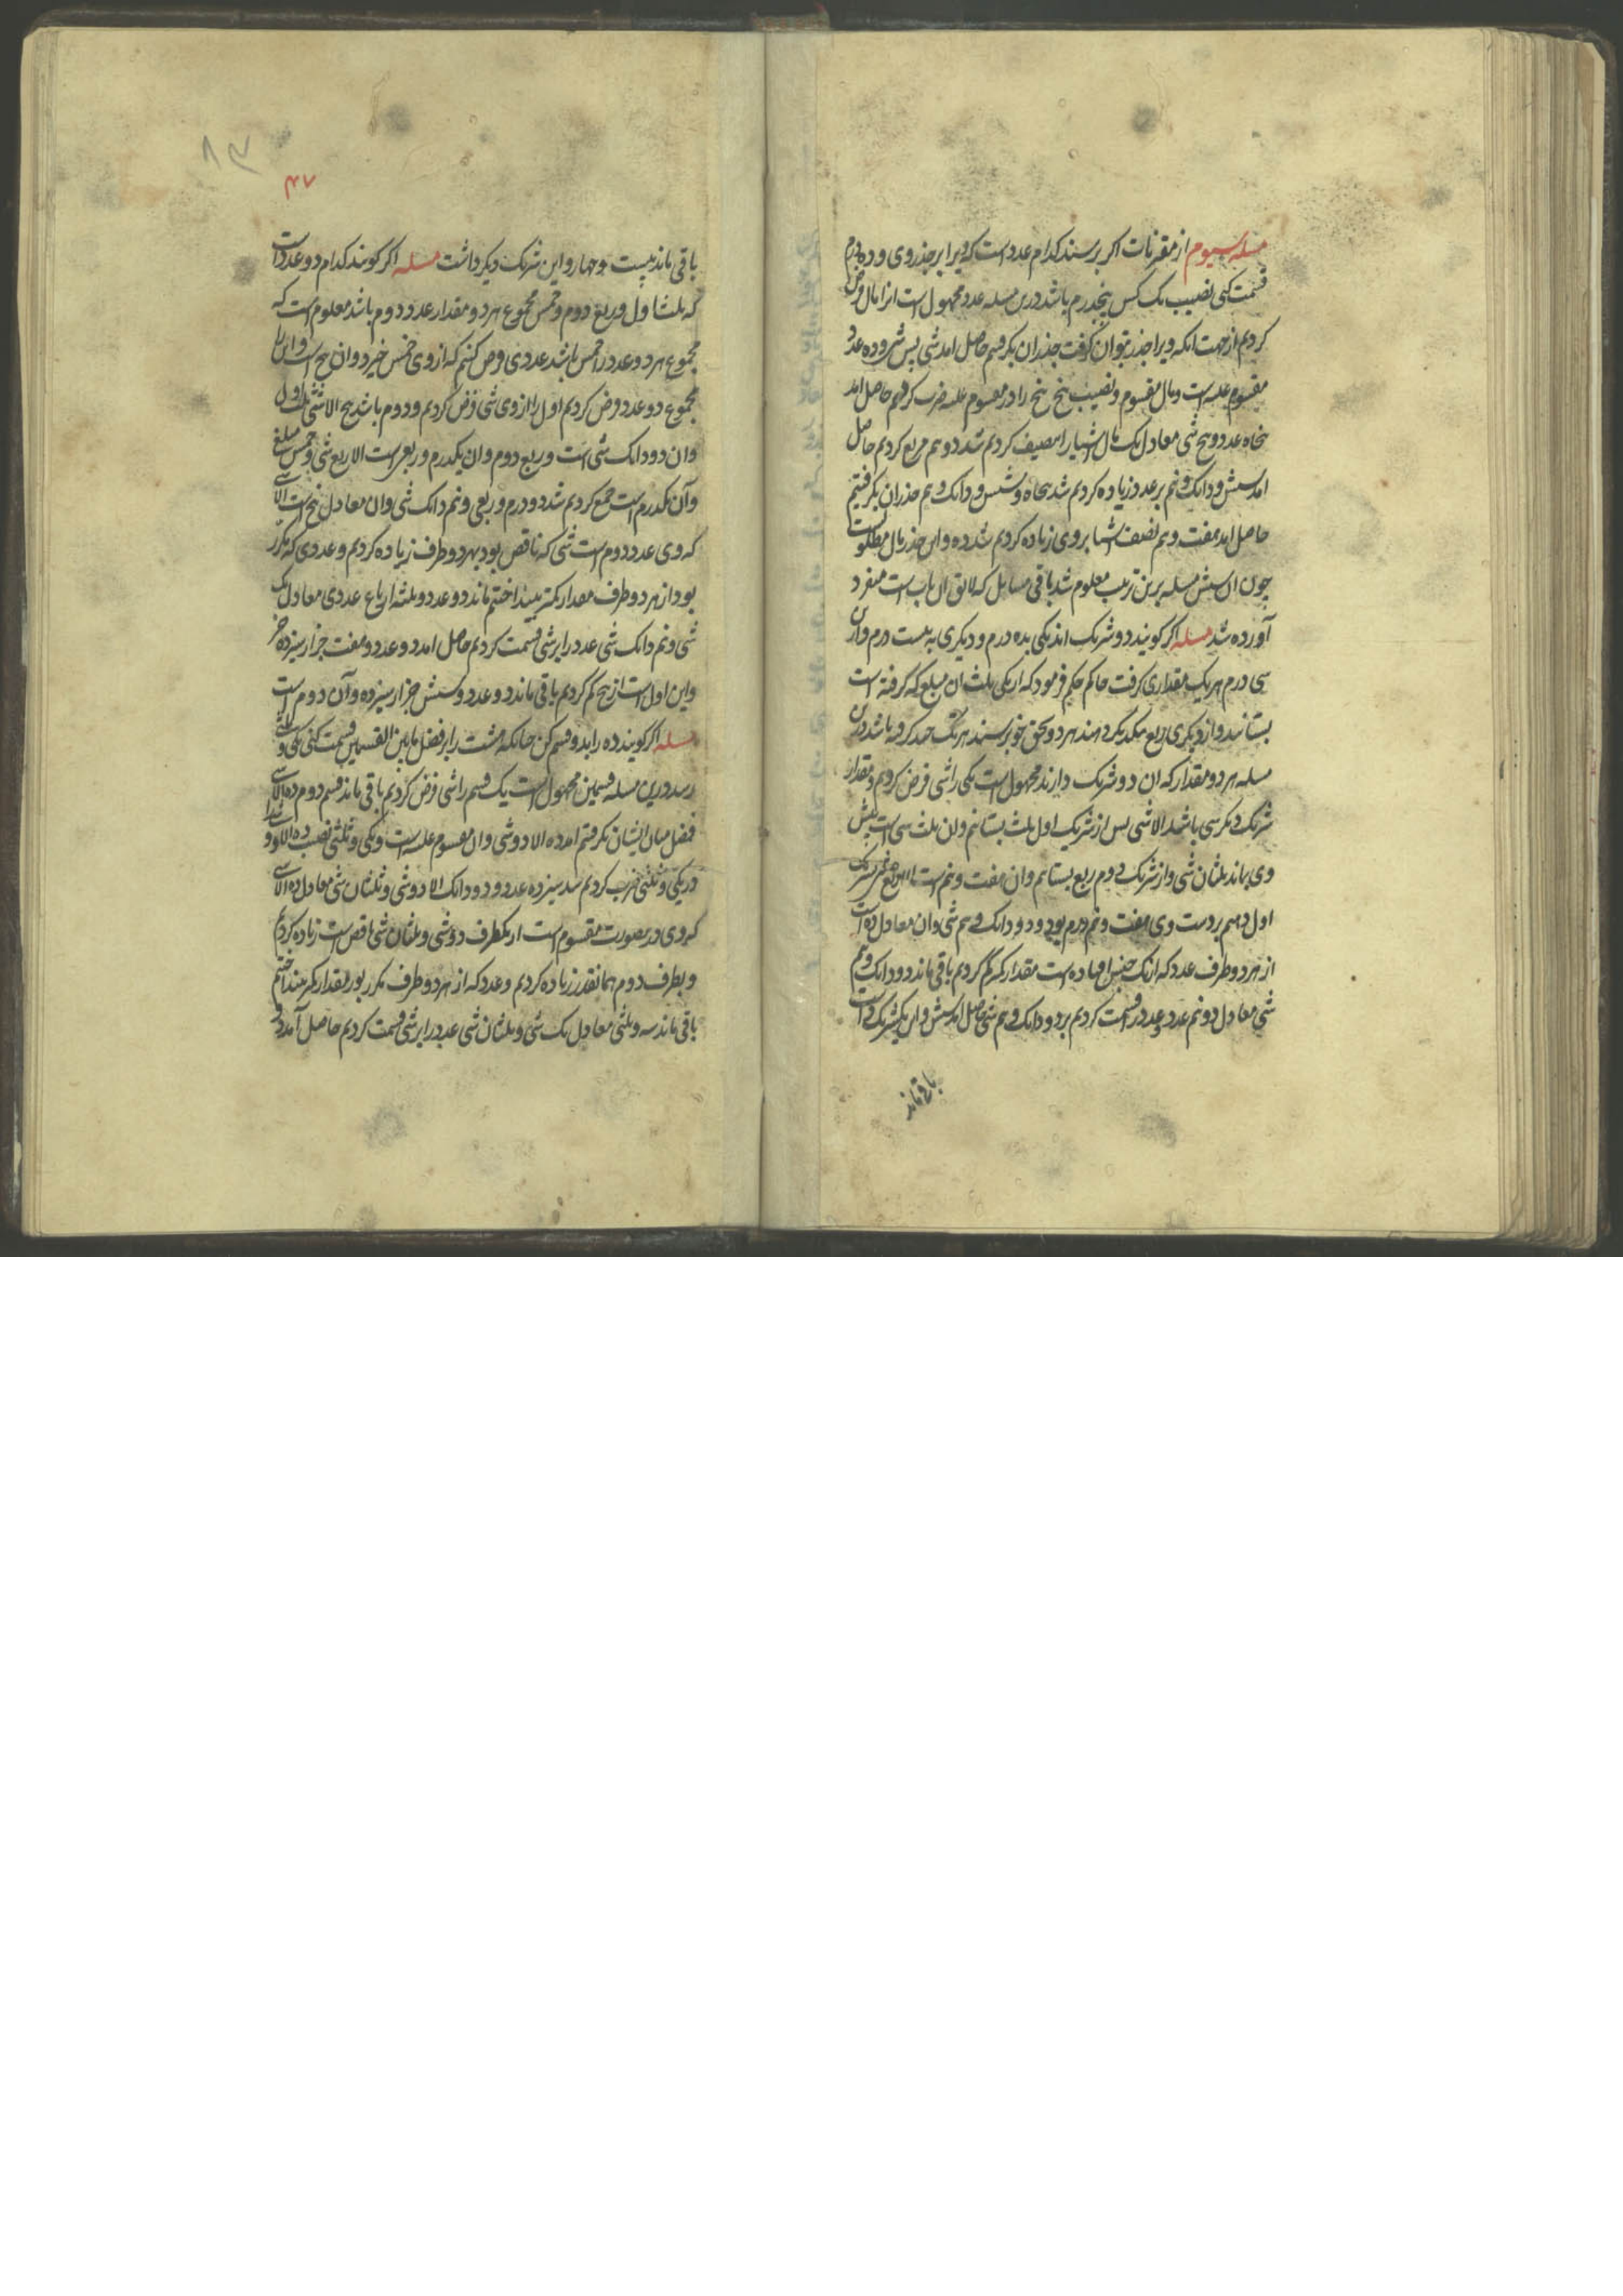 مسله سیوم از مقرنات اکر برسند کدام عدد است که ویرا بر جذر وی و ده درم
قسمت کنی نصیب یک کس پنجدرم باشد درین مسله عدد مجهول است انرا مال فرض
کردیم از جهت انکه ویرا جذر بتوان کرفت جذر ان بکرفتیم حاصل امد شی پس شی و ده عدد
مقسوم علیه است و مال مقسوم و نصیب پنج پنج را در مقسوم علیه ضرب کردیم حاصل امد
پنجاه عدد و پنج شی معادل یک مال اشیا را تنصیف کردیم شد دو و نیم مربع کردیم حاصل
امد شش و دانک و نیم بر عدد زیاده کردیم شد پنجاه و شش و دانک و نیم جذر ان بکرفتیم
حاصل امد هفت و نیم نصف اشیا بر وی زیاده کردیم شد ده و این جذر مال مطلوبست
چون این شش مسله برین ترتیب معلوم شد باقی مسایل که لایق این باب است منفرد
آورده شد مسله اکر کویند دو شریک اند یکی بده درم و دیکری به بیست درم و ازین
سی درم هر یک مقداری کرفت حاکم حکم فرمود که از یکی ثلث ان مبلغ که کرفته است
بستانند و از دیکری ربع بیکدیکر دهند هر دو بحق خود رسند هر یک چند کرفته باشد درین
مسله هر دو مقدار که ان دو شریک دارند مجهول است یکی را شی فرض کردیم و مقدار
شریک دیکر سی باشد الا شی پس از شریک اول ثلث بستانیم و ان ثلث شی است پیش
وی بماند ثلثان شی و از شریک دوم ربع بستانیم و ان هفت و نیم است الا ربع شی بشریک
اول دهیم بر دست وی هفت و نیم درم بود و دو دانک و نیم شی و ان معادل ده است
از هر دو طرف عدد که از یک جنس افتاده است مقدار کمتر کم کردیم باقی ماند دو دانک و نیم
شی معادل دو نیم عدد عدد را قسمت کردیم بر دو دانک و نیم شی حاصل امد شش و این یک شریک داشت
باقی ماند
۴۷
باقی ماند بیست و چهار و این شریک دیکر داشت مسله اکر کویند کدام دو عدد است
که ثلث اول و ربع دوم و خمس مجموع هر دو مقدار عدد دوم باشد معلوم است که
مجموع هر دو عدد را خمس باشد عددی فرض کنیم که از وی خمس خیزد و ان پنج است و این را
مجموع دو عدد فرض کردیم اول را از وی شی فرض کردیم و دوم باشد پنج الا شی ثلث اول
و ان دو دانک شی است و ربع دوم و ان یکدرم و ربعی است الا ربع شی و خمس مبلغ
و آن یکدرم است جمع کردیم شد دو درم و ربعی و نیم دانک شی و ان معادل پنج است الا شی
که وی عدد دوم است شی که ناقص بود بهر دو طرف زیاده کردیم و عددی که مکرر
بود از هر دو طرف مقدار کمتر بینداختیم ماند دو عدد و ثلثه ارباع عددی معادل یک
شی و نیم دانک شی عدد را بر شی قسمت کردیم حاصل امد دو عدد و هفت جزء از سیزده جزء
و این اول است از پنج کم کردیم باقی ماند دو عدد و شش جزء از سیزده و آن دوم است
مسله اکر کویند ده را بدو قسم کن چنانکه هشت را بر فضل ما بین القسمین قسمت کنی یکی و ثلثی
رسد درین مسله قسمین مجهول است یک قسم را شی فرض کردیم باقی ماند قسم دوم ده الا شی
فضل میان ایشان بکرفتیم امد ده الا دو شی و ان مقسوم علیه است و یکی و ثلثی نصیب
در یکی و ثلثی ضرب کردیم شد سیزده عدد و دو دانک الا دو شی و ثلثان شی معادل ده الا شی
که وی درین صورت مقسوم است از یکطرف دو شی و ثلثان شی ناقص است زیاده کردیم
و بطرف دوم همانقدر زیاده کردیم و عدد که از هر دو طرف مکرر بود مقدار کمتر بینداختیم
باقی ماند سه و ثلثی معادل یک شی و ثلثان شی عدد را بر شی قسمت کردیم حاصل آمد دو